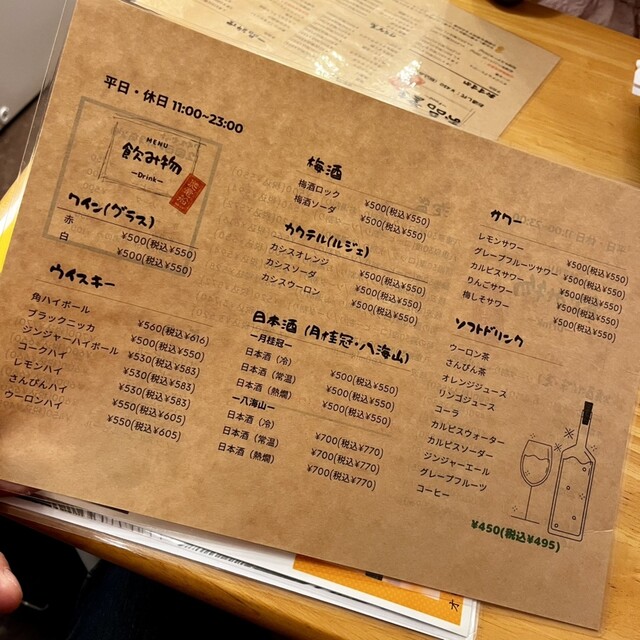 平日・休日 11:00~23:00
MENU
飲み物
ーDrinkー
ワイン(グラス)
赤 ¥500(税込¥550)
白 ¥500(税込¥550)
ウイスキー
角ハイボール ¥560(税込¥616)
ブラックニッカ ¥500(税込¥550)
ジンジャーハイボール ¥530(税込¥583)
コークハイ ¥530(税込¥583)
レモンハイ ¥530(税込¥583)
さんぴんハイ ¥550(税込¥605)
ウーロンハイ ¥550(税込¥605)
梅酒
梅酒ロック ¥500(税込¥550)
梅酒ソーダ ¥500(税込¥550)
カクテル(ルジェ)
カシスオレンジ ¥500(税込¥550)
カシスソーダ ¥500(税込¥550)
カシスウーロン ¥500(税込¥550)
日本酒 (月桂冠・八海山)
ー月桂冠ー
日本酒(冷) ¥500(税込¥550)
日本酒(常温) ¥500(税込¥550)
日本酒(熱燗) ¥500(税込¥550)
ー八海山ー
日本酒(冷) ¥700(税込¥770)
日本酒(常温) ¥700(税込¥770)
日本酒(熱燗) ¥700(税込¥770)
サワー
レモンサワー ¥500(税込¥550)
グレープフルーツサワー ¥500(税込¥550)
カルピスサワー ¥500(税込¥550)
りんごサワー ¥500(税込¥550)
梅しそサワー ¥500(税込¥550)
ソフトドリンク
ウーロン茶
さんぴん茶
オレンジジュース
リンゴジュース
コーラ
カルピスウォーター
カルピスソーダー
ジンジャーエール
グレープフルーツ
コーヒー
¥450(税込¥495)